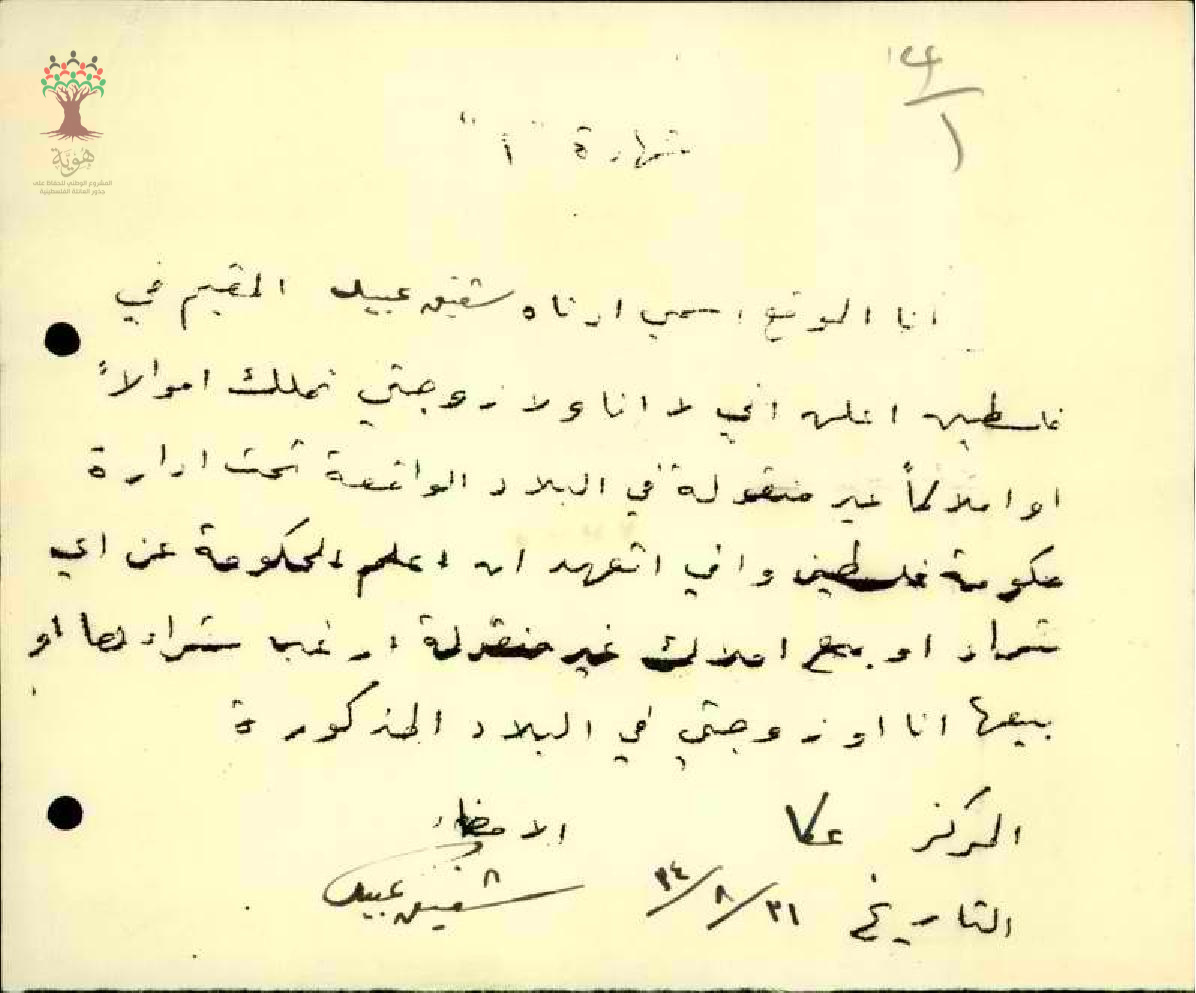 هُوِيَّة
المشروع الوطني للحفاظ على
جذور العائلة الفلسطينية
شهادة "أ"
انا الموقع اسمي ادناه شفيق عبيد المقيم في
فلسطين اعلن اني لا انا ولا زوجتي نملك اموالاً
او املاكاً غير منقولة في البلاد الواقعة تحت ادارة
حكومة فلسطين واني اتعهد ان اعلم الحكومة عن اي
شراء او بيع املاك غير منقولة ارغب شراءها او
بيعها انا او زوجتي في البلاد المذكورة
المركز عكا الامضاء
التاريخ ٣١/٨/٢٤ شفيق عبيد